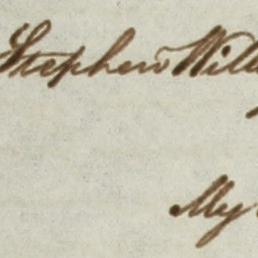 Stephen Will
My